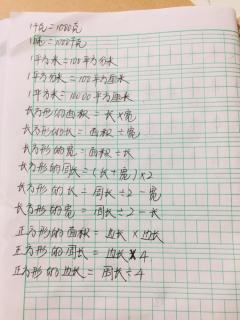 1千克=1000克
1吨=1000千克
1平方米=100平方分米
1平方分米=100平方厘米
1平方米=10000平方厘米
长方形的面积=长×宽
长方形的长=面积÷宽
长方形的宽=面积÷长
长方形的周长=(长+宽)×2
长方形的长=周长÷2-宽
长方形的宽=周长÷2-长
正方形的面积=边长×边长
正方形的周长=边长×4
正方形的边长=周长÷4